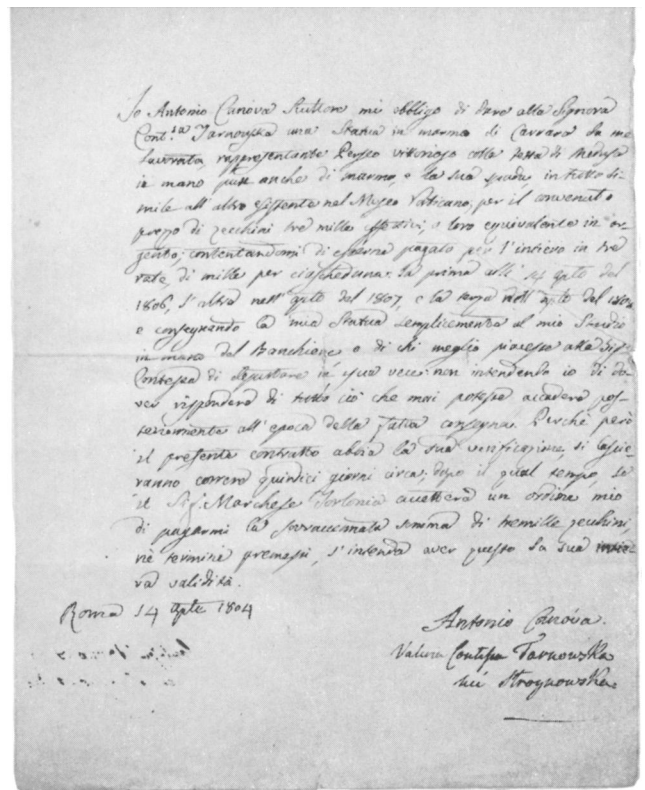 Io Antonio Canova Scultore mi obbligo di dare alla Signora
Cont.sa Tarnowska una Statua in marmo di Carrara da me
lavorata, rappresentante Perseo vitorioso colla testa di Medusa
in mano pur anche di marmo, e la sua spada, in tutto si-
mile all'altro esistente nel Museo Vaticano; per il convenuto
prezzo di zecchini tre mille effettivi, o loro equivalente in ar-
gento; contentandomi di esserne pagato per l'intiero in tre
rate, di mille per ciascheduna: la prima alli 14 agsto del
1806, l'altra nell'agsto del 1807, e la terza nell'agsto del 1808
e consegnando la mia Statua semplicemente al mio Studio
in mano del Banchiere o di chi meglio piacesse alla Sig.
Contessa di in sua vece: non intendendo io di do-
ver rispondere di tutto ciò che mai potesse accadere pos-
teriormente all'epoca della fatta consegna. Perchè però
il presente contratto abbia la sua verificazione, si lascie-
ranno correre quindici giorni circa; dopo il qual tempo, se
il Sig. Marchese Torlonia accetterà un ordine mio
di pagarmi la sovraccennata somma di tremille zecchini
ne' termini premessi, s'intenda aver questo la sua intie-
ra validità.
Roma 14 agsto 1804
Antonio Canova.
Valeria Contessa Tarnowska
née Stroynowska